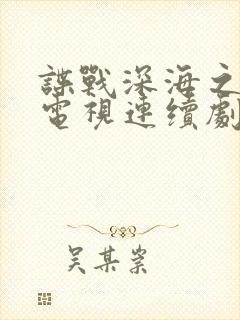 諜戰深海之
電視連續劇
吴某崇